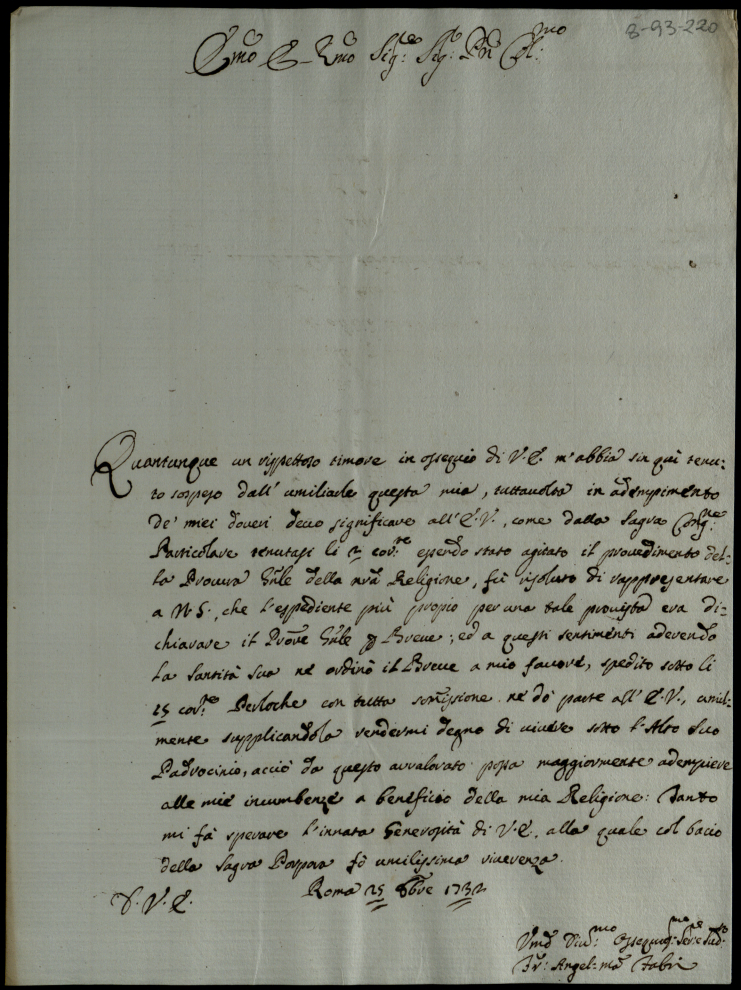 8-93-220
Emo e Rmo Sig:re Sig:re Pn Col:mo
Quantunque un rispettoso timore in ossequio di V.E. m'abbia sin qui tenu-
to sospeso dall'umiliarle questa mia, tuttavolta in adempimento
de' miei doveri devo significare all'E.V., come dalla Sagra Cong:ne
Particolare tenutasi li 2 cor:te essendo stato agitato il provedimento del-
la Procura Gnle della nra Religione, fù risoluto di rappresentare
a N.S., che l'espediente più propio per una tale provista era di-
chiarare il Prore Gnle p Breve; ed a questi sentimenti aderendo
la Santità Sua ne ordinò il Breve a mio favore, spedito sotto li
15 cor:te Perloche con tutta somissione ne dò parte all'E.V., umil-
mente supplicandola rendermi degno di vivere sotto l'Alto Suo
Padrocinio, acciò da questo avvalorato possa maggiormente adempiere
alle mie incumbenze a beneficio della mia Religione: Tanto
mi fà sperare l'innata Generosità di V.E., alla quale col bacio
della Sagra Porpora fò umilissima riverenza.
D. V. E. Roma 25 8bre 1732
Vmo Div:mo Ossequios:mo Ser:re
Fr: Angel: Ma Fabri